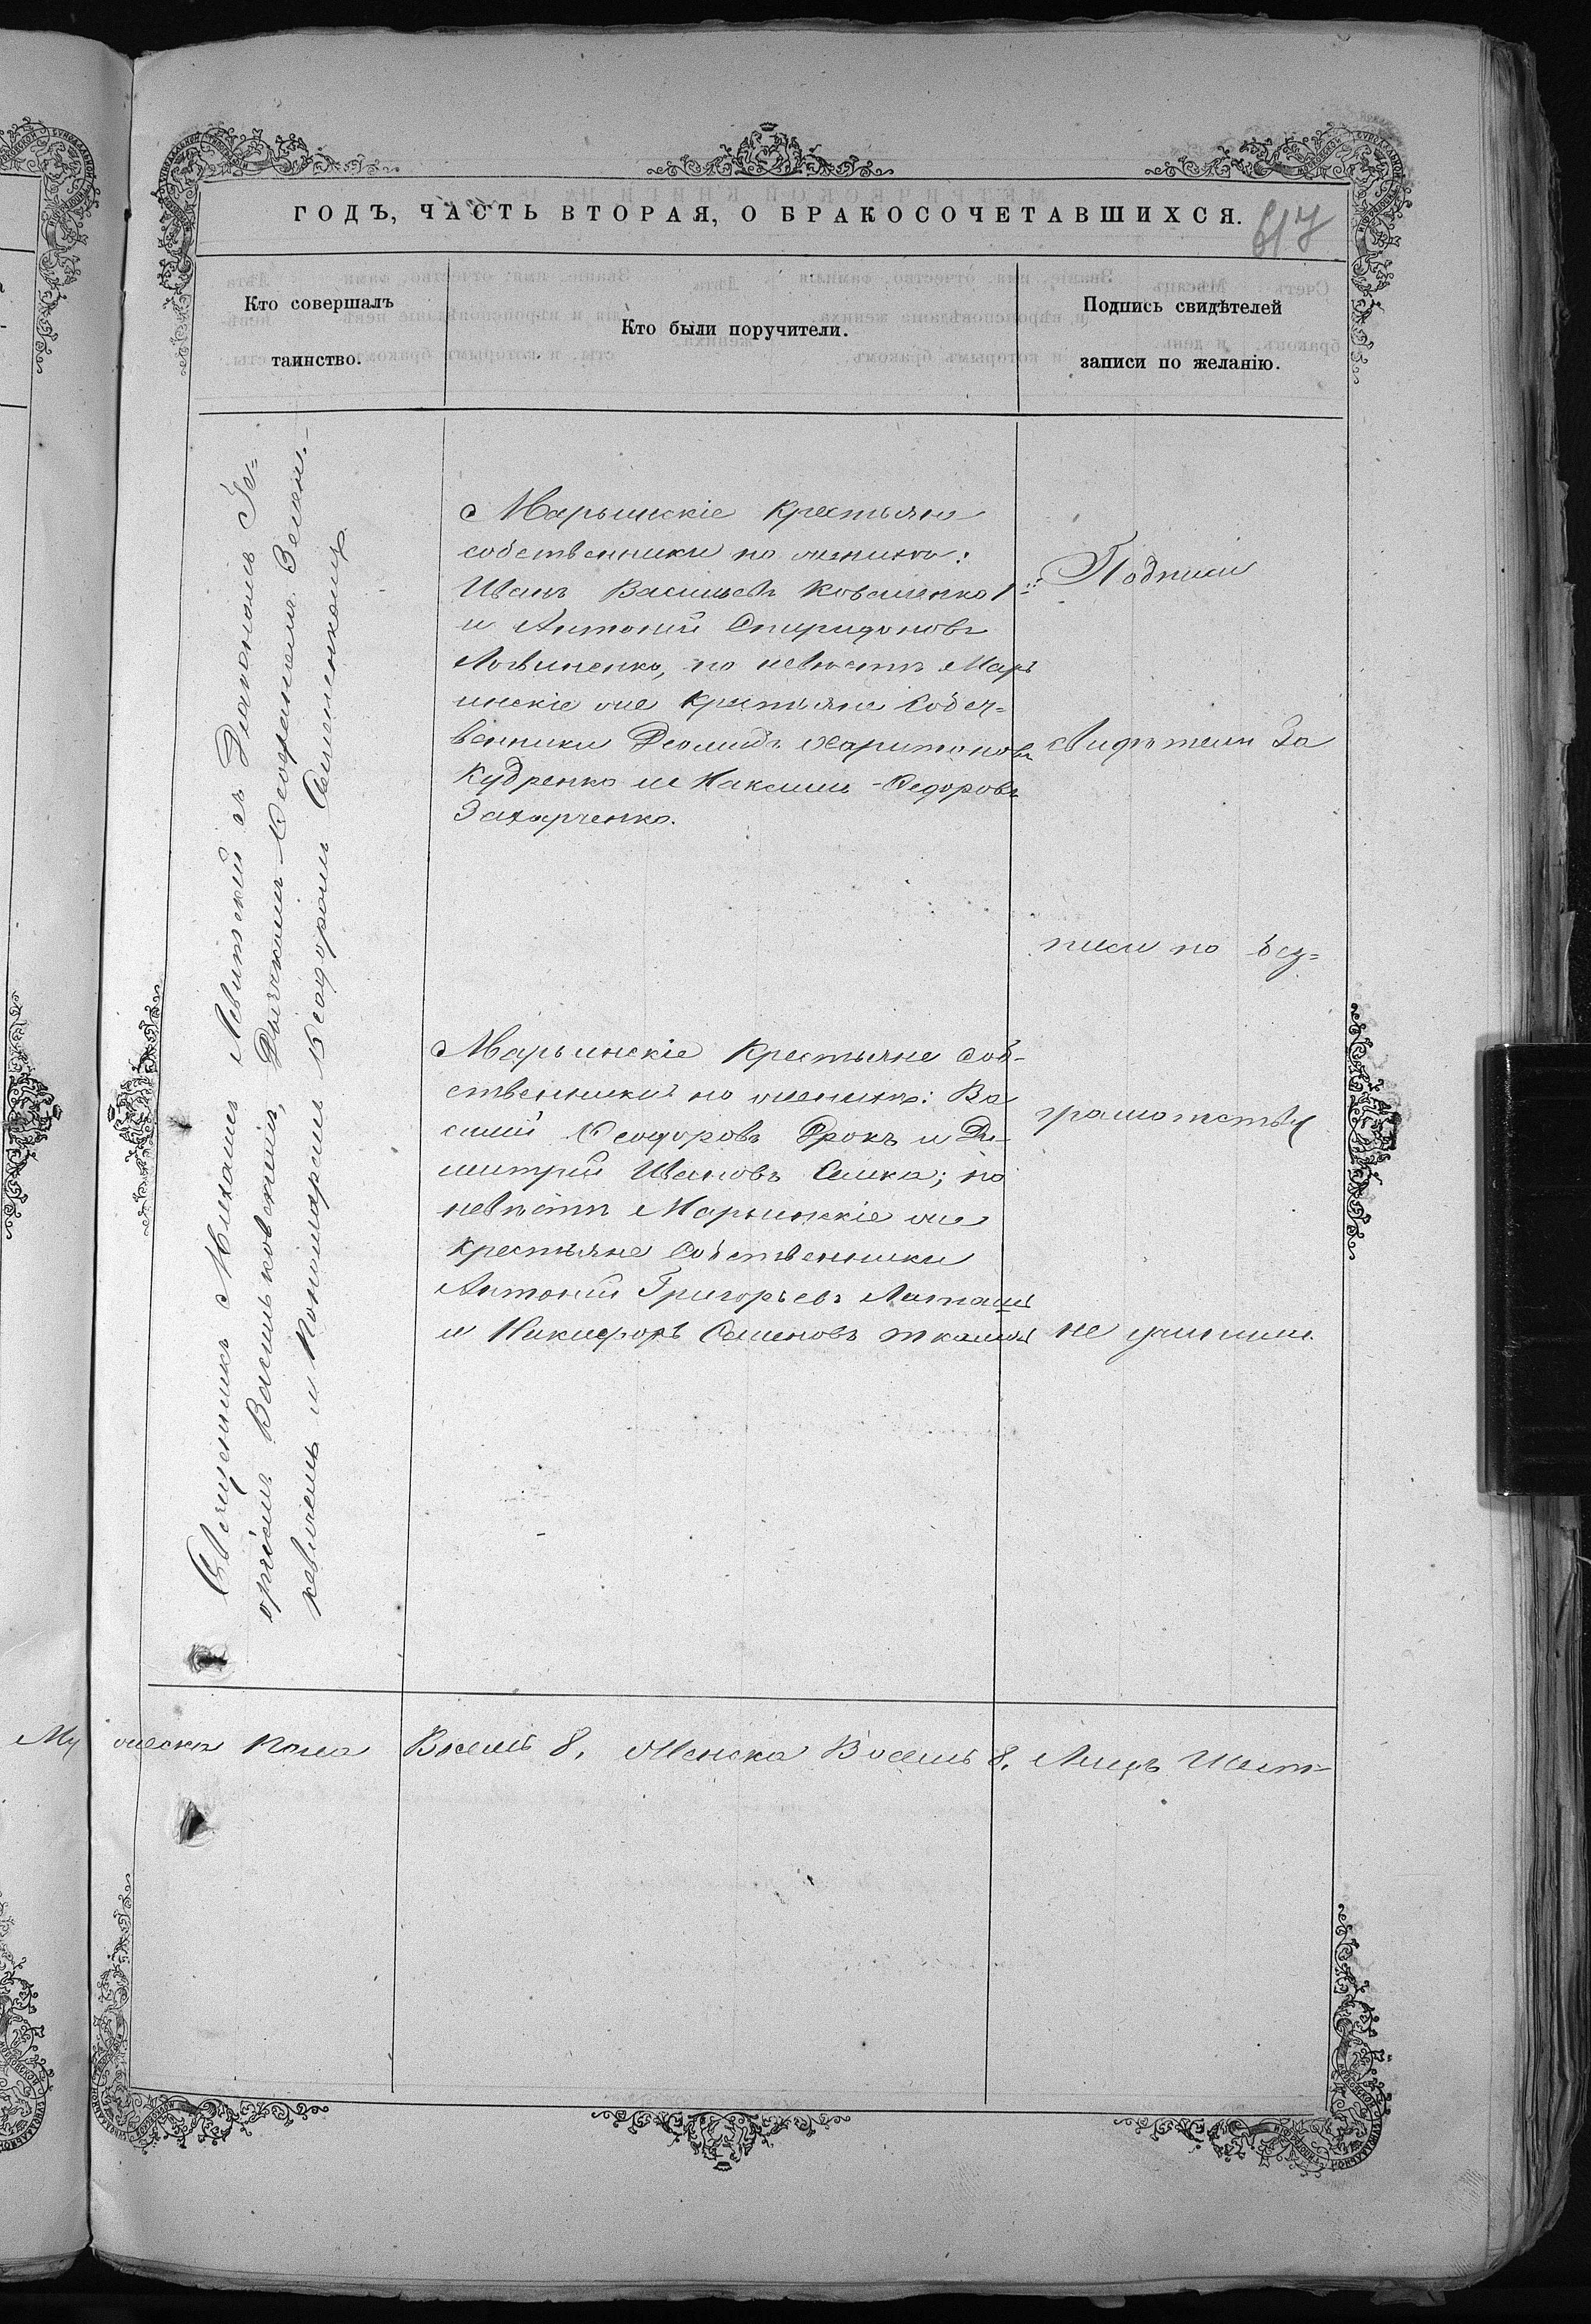 ГОДЪ, ЧАСТЬ ВТОРАЯ, О БРАКОСОЧЕТАВШИХСЯ.
617
Кто совершалъ
таинство.
Кто были поручители.
Подпись свидѣтелей
записи по желанію.
Священникъ Михаилъ Левитскій съ Діакономъ Ге=
оргіемъ Васильковскимъ, Дьячкомъ Ѳеофаномъ Зелен-
кевичемъ и Пономаремъ Ѳеодоромъ Сименкомъ
Марьинскіе Крестьяне
собственники по женихѣ:
Иванъ Васильевъ Коваленко 1й
и Антоній Спиридоновъ
Логвиненко, по невѣстѣ Марь
инскіе же Крестьяне Собст=
венники Деомидъ Харитоновъ
Кудренко и Максимъ Ѳедоровъ
Захарченко.
Марьинскіе Крестьяне соб-
ственники по женихѣ: Ва
силій Ѳеодоровъ и Ди-
митрій Ивановъ Сишка; по
невѣстѣ Марьинскіе же
Крестьяне Собственники
Антоній Григорьевъ Латышъ
и Никифоръ Семеновъ
Подписи
свидѣтели за
писи по без=
грамотству
не учинили.
Му
жеска Пола Восемь 8, Женска Восемь 8, Лицъ Шест-